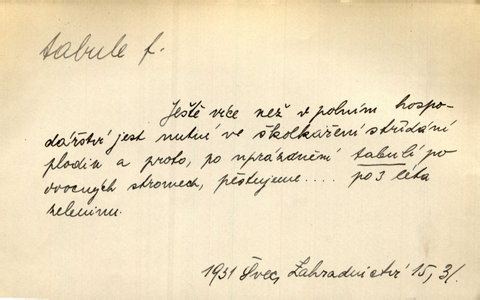 tabule f.
Ještě více než v polním hospo-
dářství jest nutné ve školkaření střídání
plodin a proto, po uprázdnění tabulí po
ovocných stromech, pěstujeme.... po 3 léta
zeleninu.
1931 Švec, Zahradnictví 15, 31.